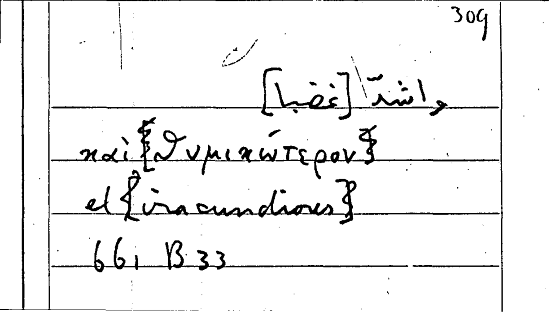 309
واشدّ [غضبا]
καὶ {θυμικώτερον}
et {iracundiores}
661 B 33